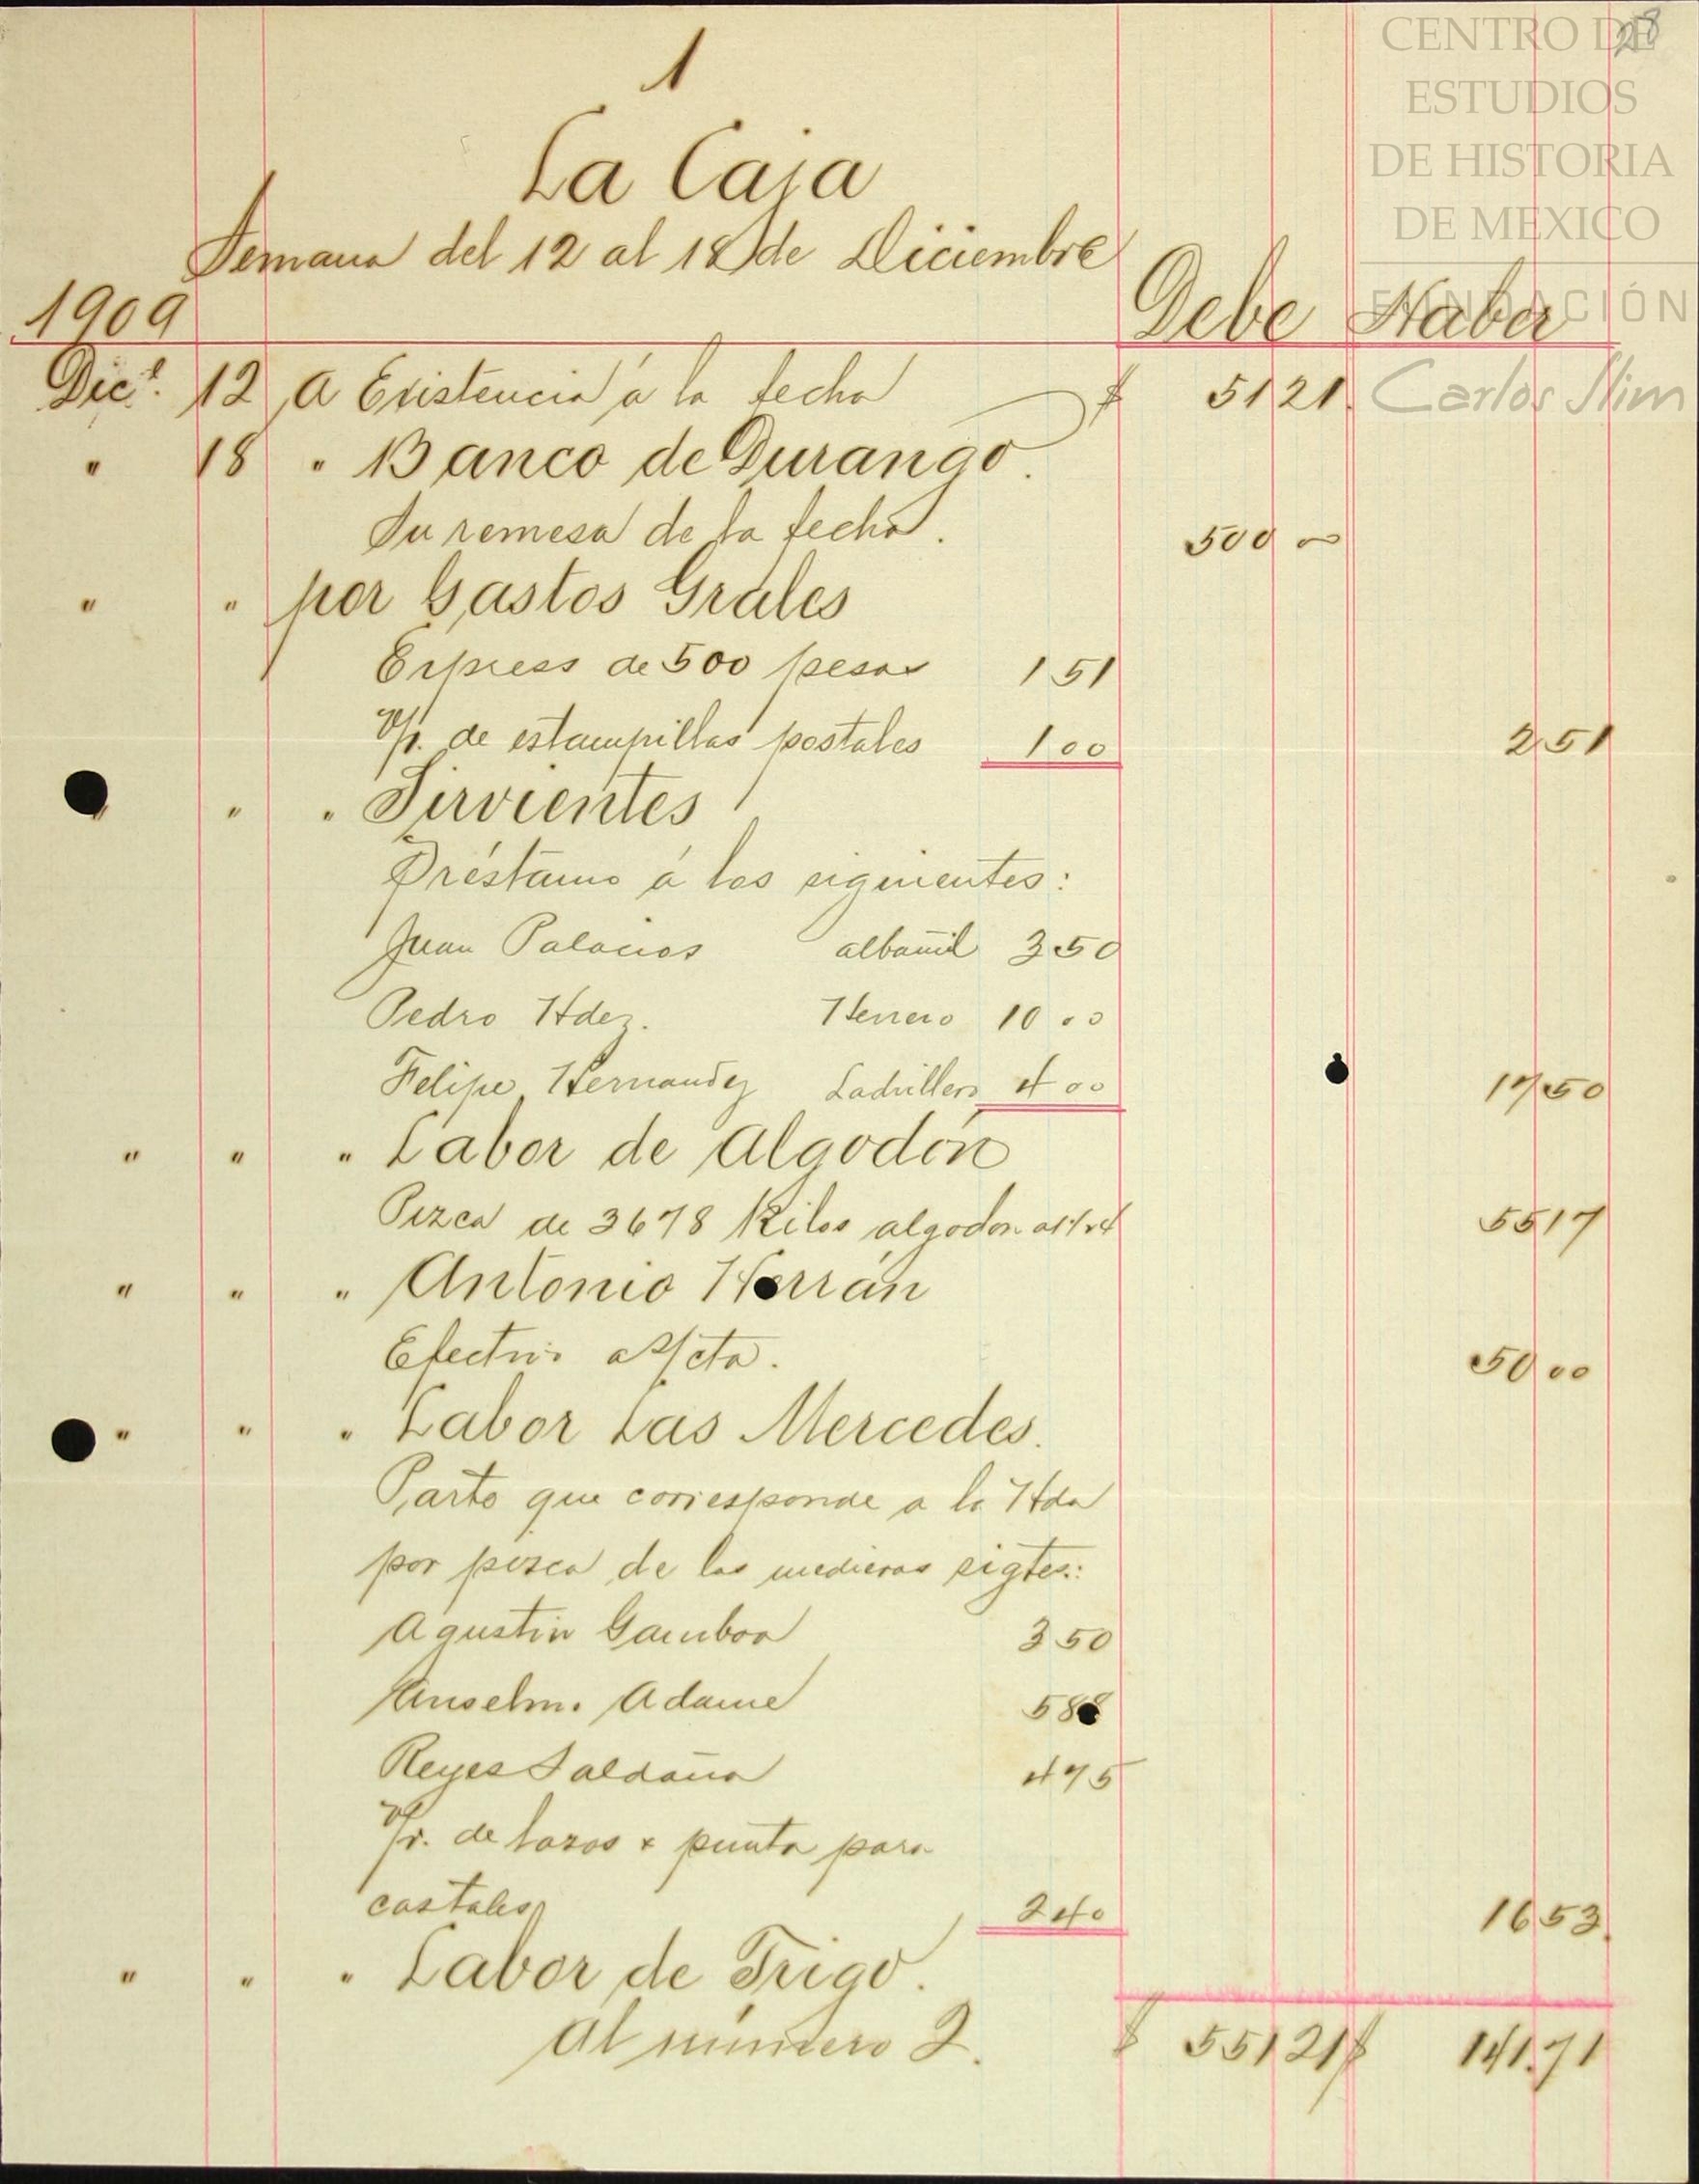 28
CENTRO DE
ESTUDIOS
DE HISTORIA
DE MEXICO
FUNDACIÓN
Carlos Slim
1
La Caja
Semana del 12 al 18 de Diciembre
1909 Debe Haber
Dice. 12 A Existencia á la fecha $ 51 21
" 18 " Banco de Durango.
Su remesa de la fecha. 500 00
" " por Gastos Grales
Express de 500 pesos 1 51
V/r. de estampillas postales 1 00 2 51
" " " Sirvientes
Préstamo á los siguientes:
Juan Palacios albañil 3 50
Pedro Hdez. Herrero 10 00
Felipe Hernandez Ladrillero 4 00 17 50
" " " Labor de Algodón
Pizca de 3678 Kilos algodon 55 17
" " " Antonio Herrán
Efectivo a s/cta. 50 00
" " " Labor Las Mercedes.
Parte que corresponde a la Hda
por pizca de los medieros sigtes.:
Agustin Gamboa 3 50
Anselmo Adame 5 88
Reyes Saldaña 4 75
V/r. de lazos y punta para
costales 2 40 16 53
" " " Labor de Trigo.
Al número 2. $ 551 21 $ 141.71